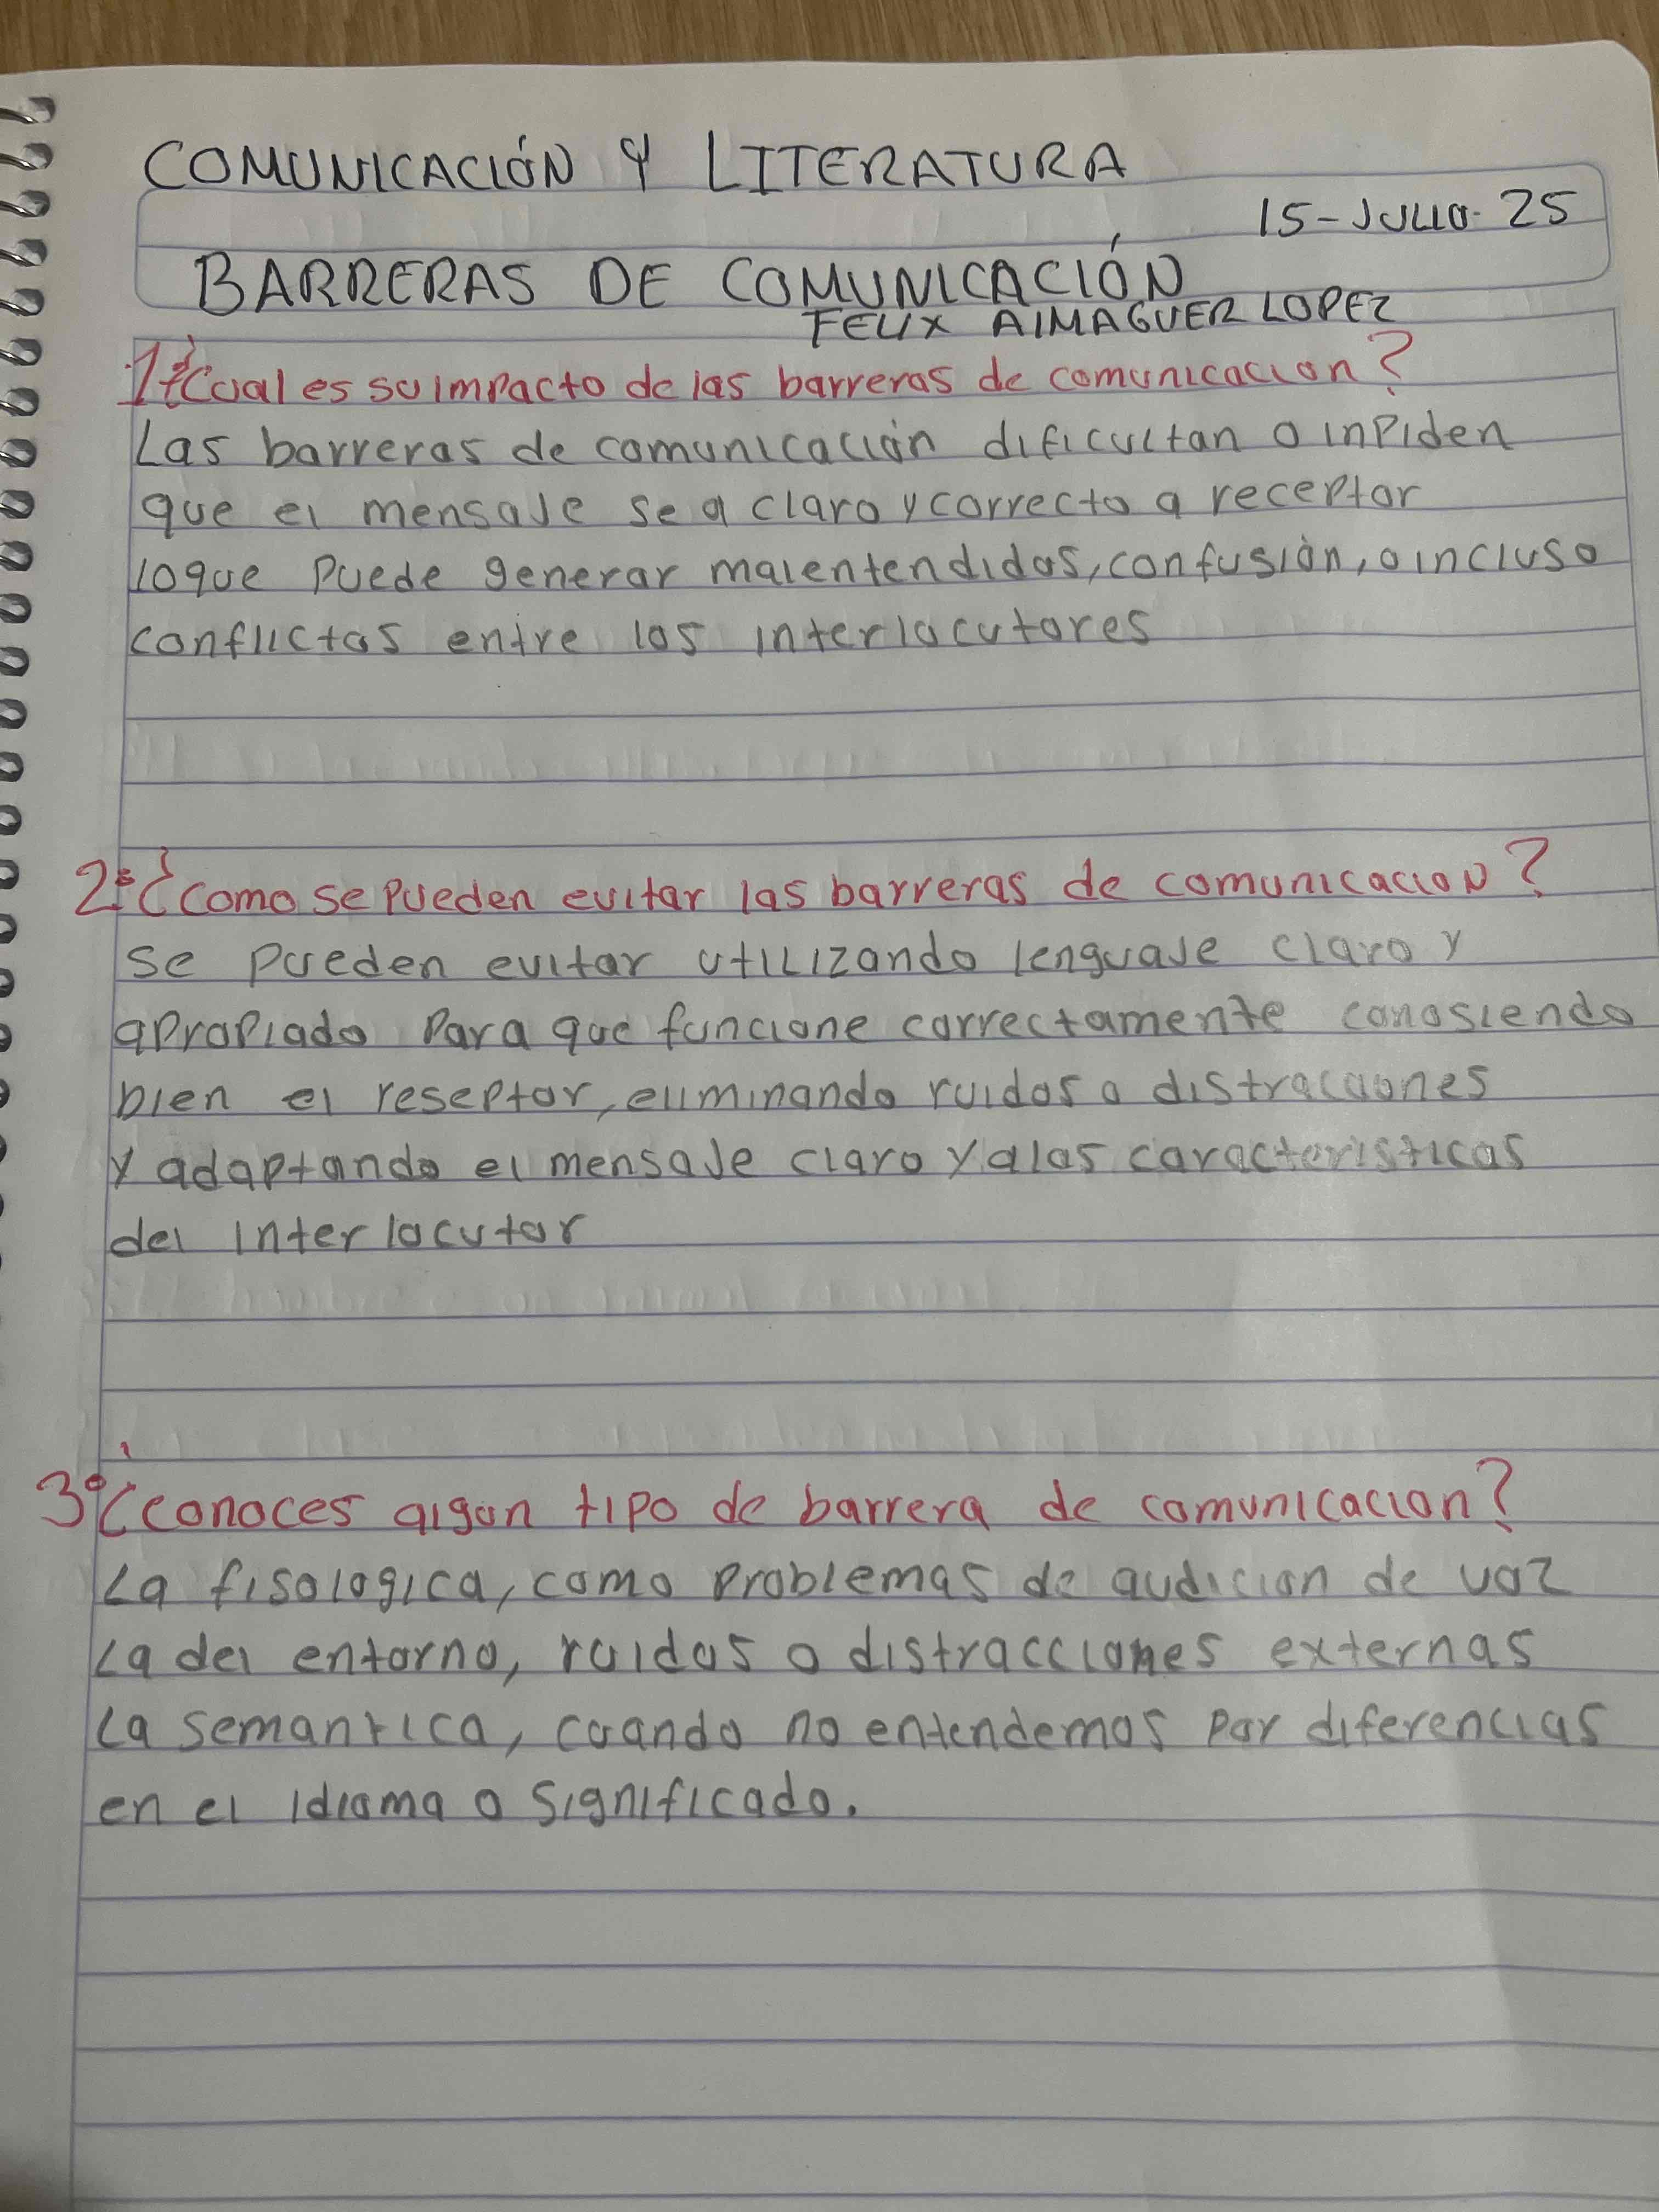 COMUNICACIÓN Y LITERATURA
15-JULIO-25
BARRERAS DE COMUNICACIÓN
FELIX AlMAGUER LOPEZ
1º ¿Cual es su impacto de las barreras de comunicacion?
Las barreras de comunicación dificultan o inpiden
que el mensaje sea claro y correcto a receptor
loque puede generar malentendidos, confusión, o incluso
conflictos entre los interlocutores
2º ¿como se pueden evitar las barreras de comunicacion?
se pueden evitar utilizando lenguaje claro y
apropiado para que funcione correctamente conosiendo
bien el reseptor, eliminando ruidos o distracciones
y adaptando el mensaje claro y a los caracteristicas
del interlocutor
3º ¿conoces algun tipo de barrera de comunicacion?
La fisologica, como problemas de audicion de voz
La del entorno, ruidos o distracciones externas
La semantica, cuando no entendemos por diferencias
en el idioma o significado.